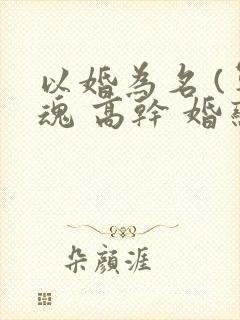 以婚為名(
魂 高幹 婚
朵顏涯